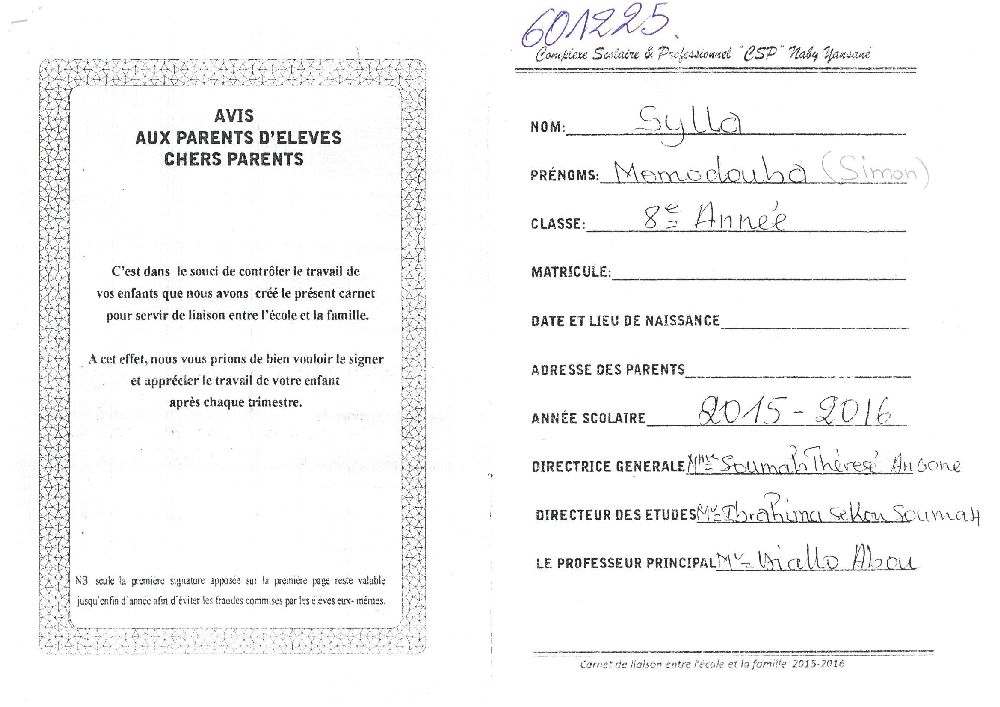 AVIS
AUX PARENTS D'ELEVES
CHERS PARENTS
C'est dans le souci de contrôler le travail de
vos enfants que nous avons créé le présent carnet
pour servir de liaison entre l'école et la famille.
A cet effet, nous vous prions de bien vouloir le signer
et apprécier le travail de votre enfant
après chaque trimestre.
NB seule la première signature apposée sur la première page reste valable
jusqu'enfin d'année afin d'éviter les fraudes commises par les élèves eux- mêmes.
601225.
Complexe Scolaire & Professionnel "CSP" Naby Yansané
NOM: Sylla
PRÉNOMS: Momodouba (Simon)
CLASSE: 8e Année
MATRICULE:
DATE ET LIEU DE NAISSANCE
ADRESSE DES PARENTS
ANNÉE SCOLAIRE 2015-2016
DIRECTRICE GENERALE Mme Soumah Thérese Angone
DIRECTEUR DES ETUDES Mr Ibrahima Sekou Soumah
LE PROFESSEUR PRINCIPAL Mr Diallo Abou
Carnet de liaison entre l'école et la famille 2015-2016